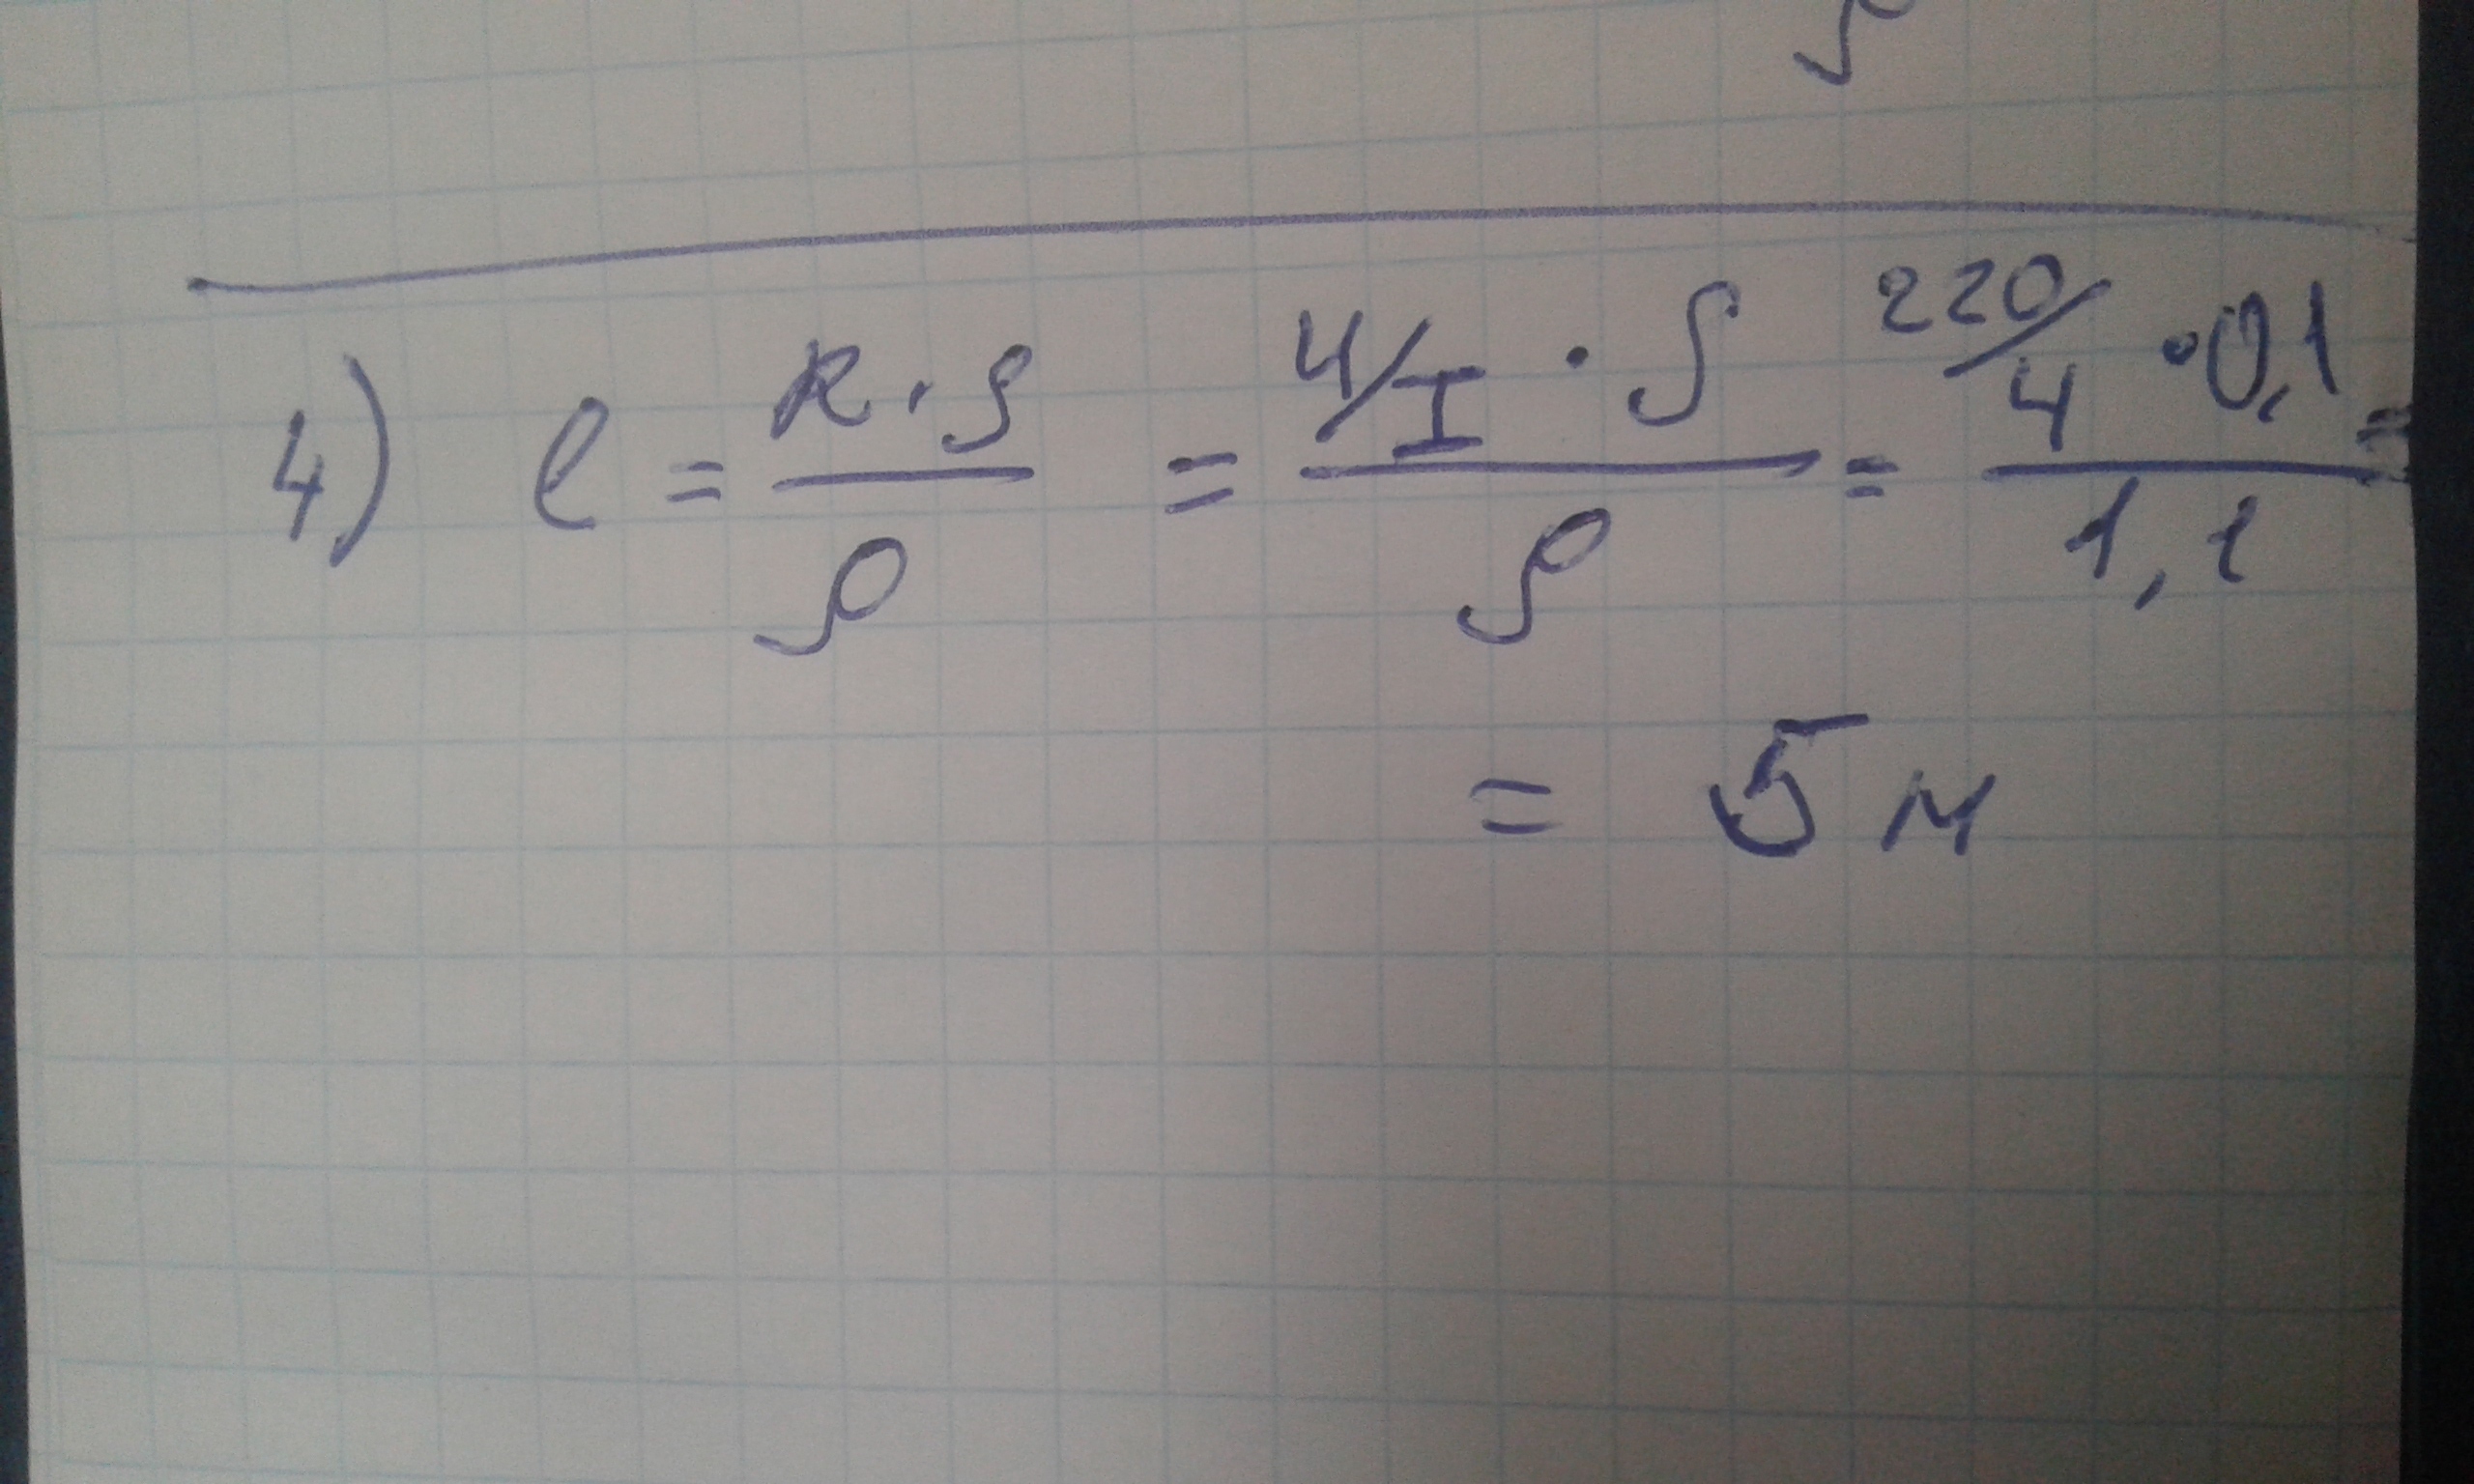 4) l = R·S/ρ = U/I · S/ρ = 220/4 · 0,1/1,1 =
= 5 м